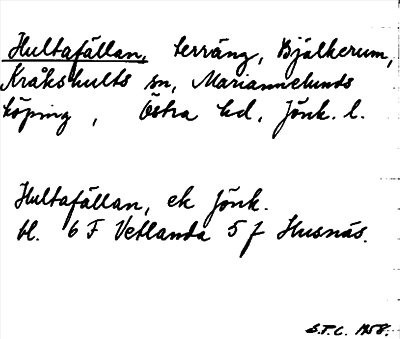 Hultafällan, terräng, Bjälkerum,
Kråkshults sn, Mariannelunds
köping, Östra hd, Jönk. l.
Hultafällan, ek Jönk.
bl. 6 F Vetlanda 5 f Husnäs.
S.T.C. 1958.